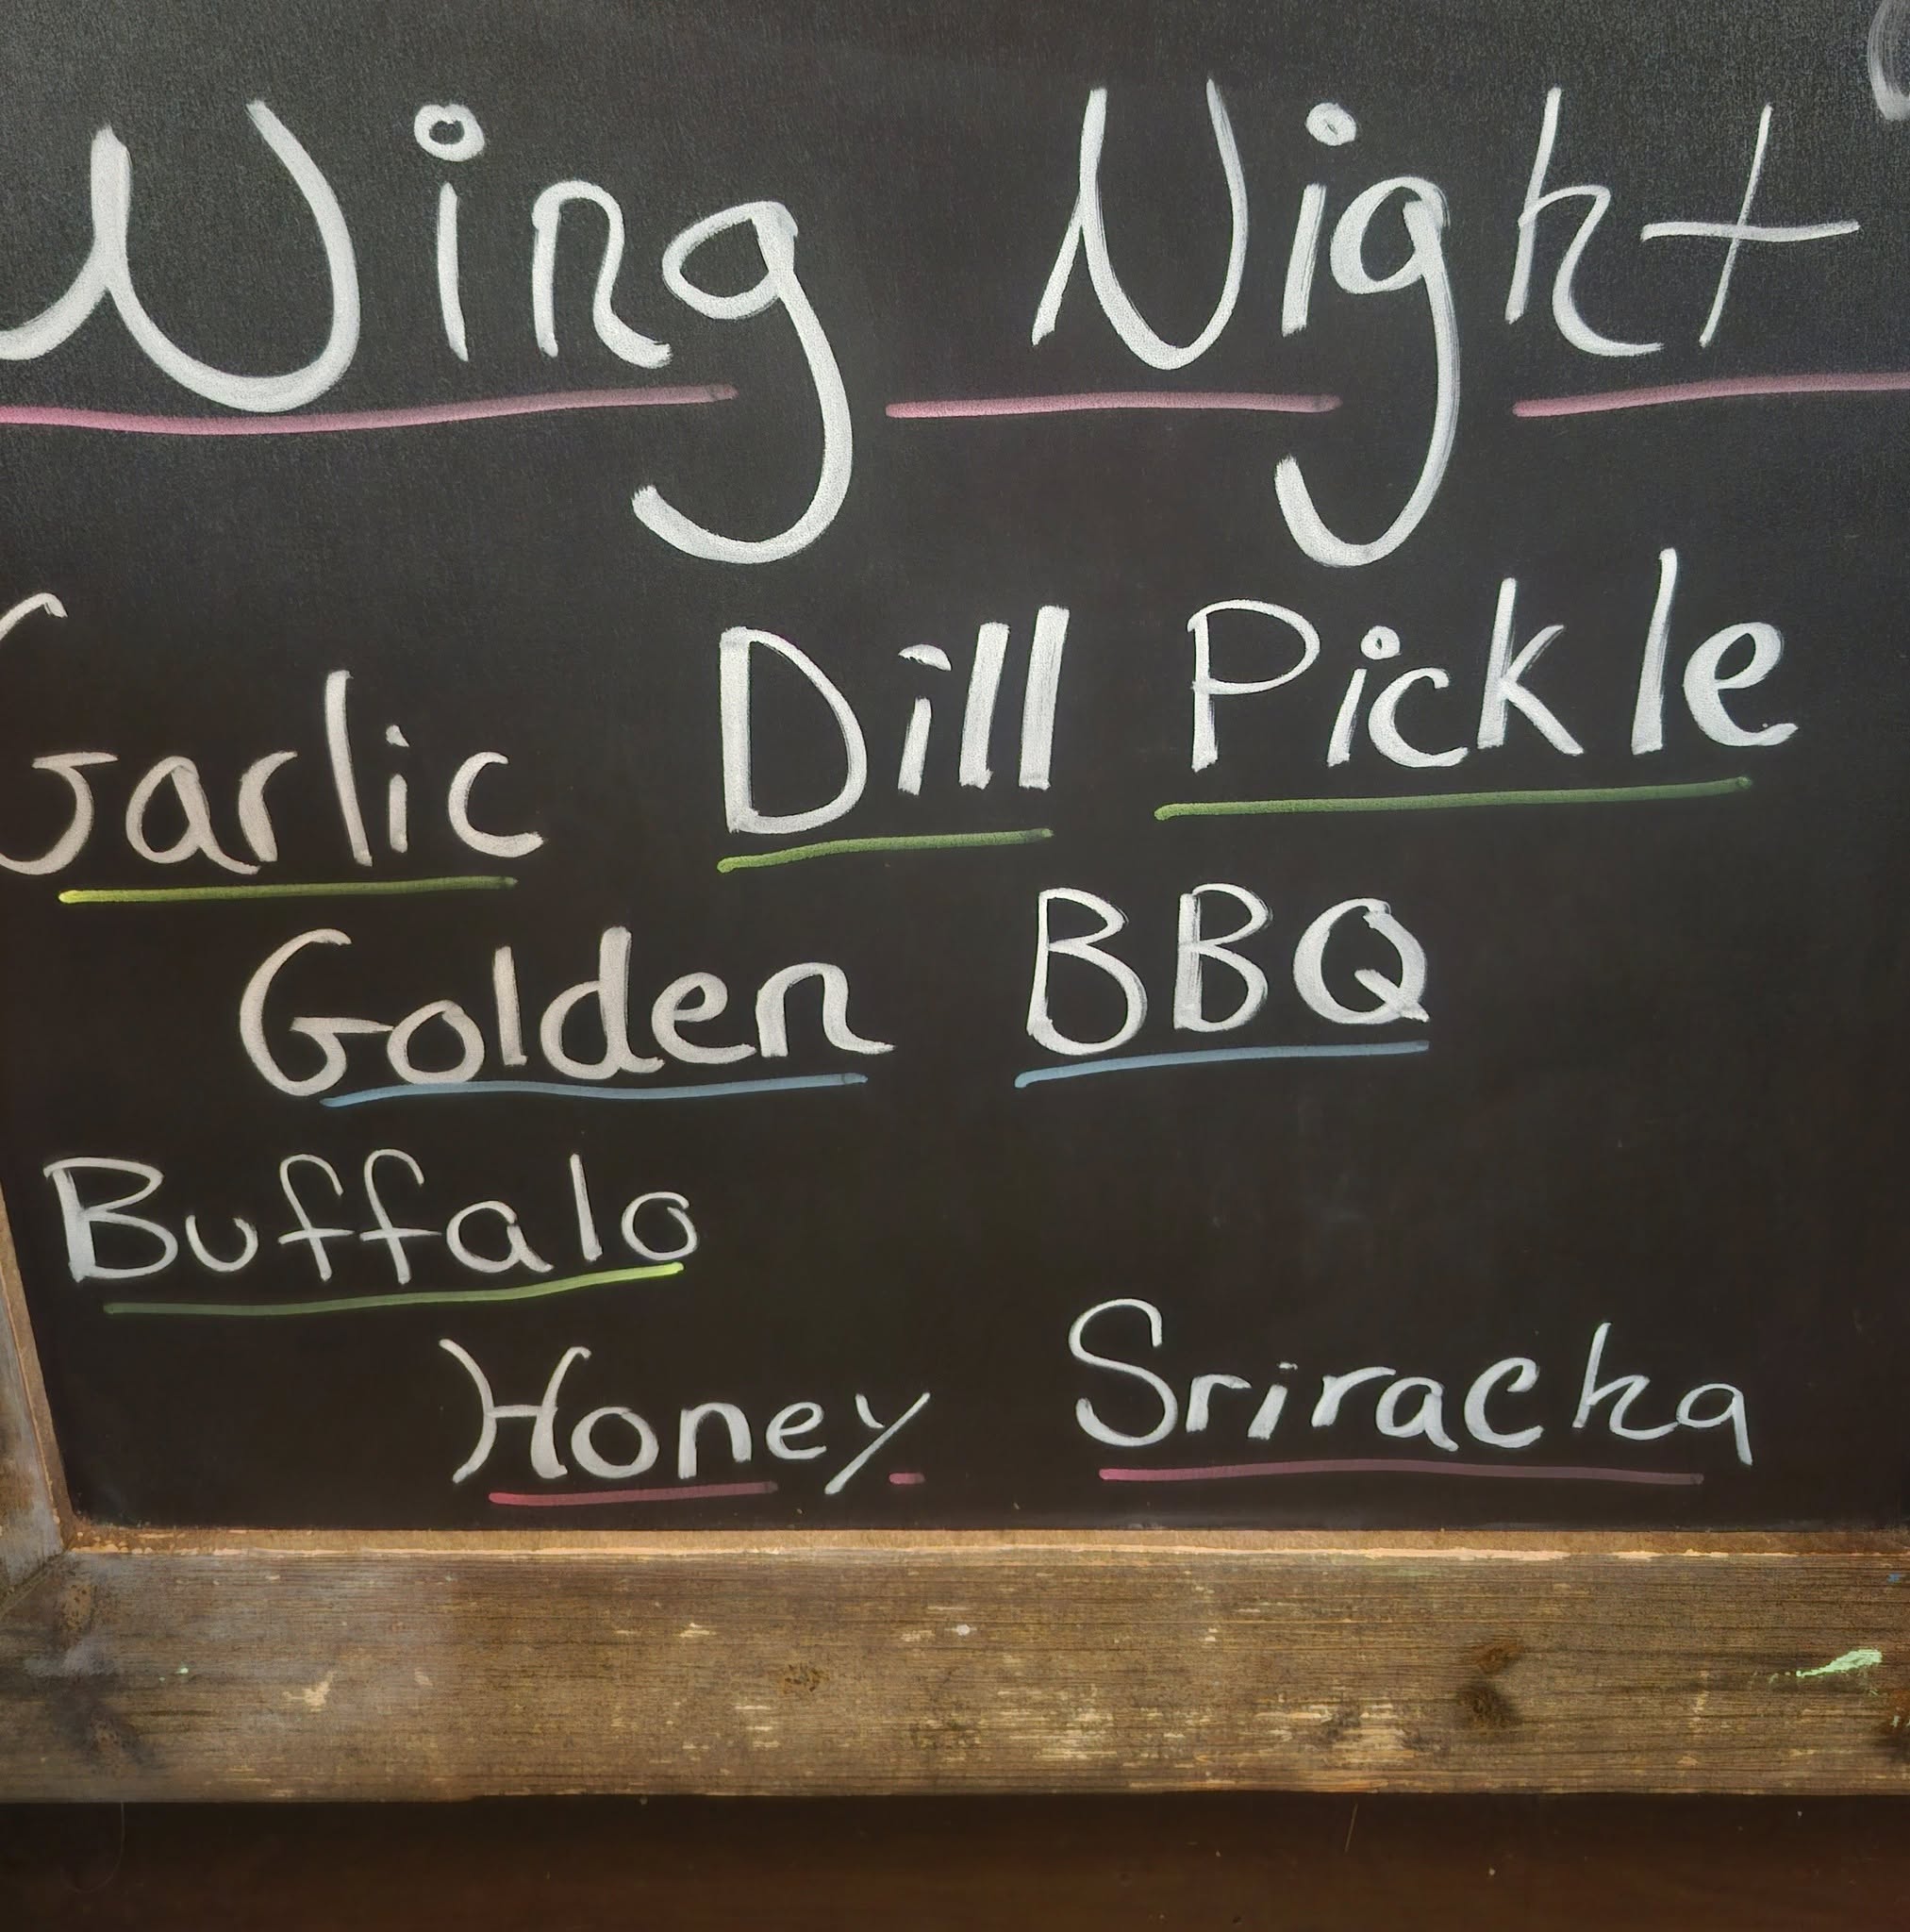 Wing Night
Garlic Dill Pickle
Golden BBQ
Buffalo
Honey Sriracha